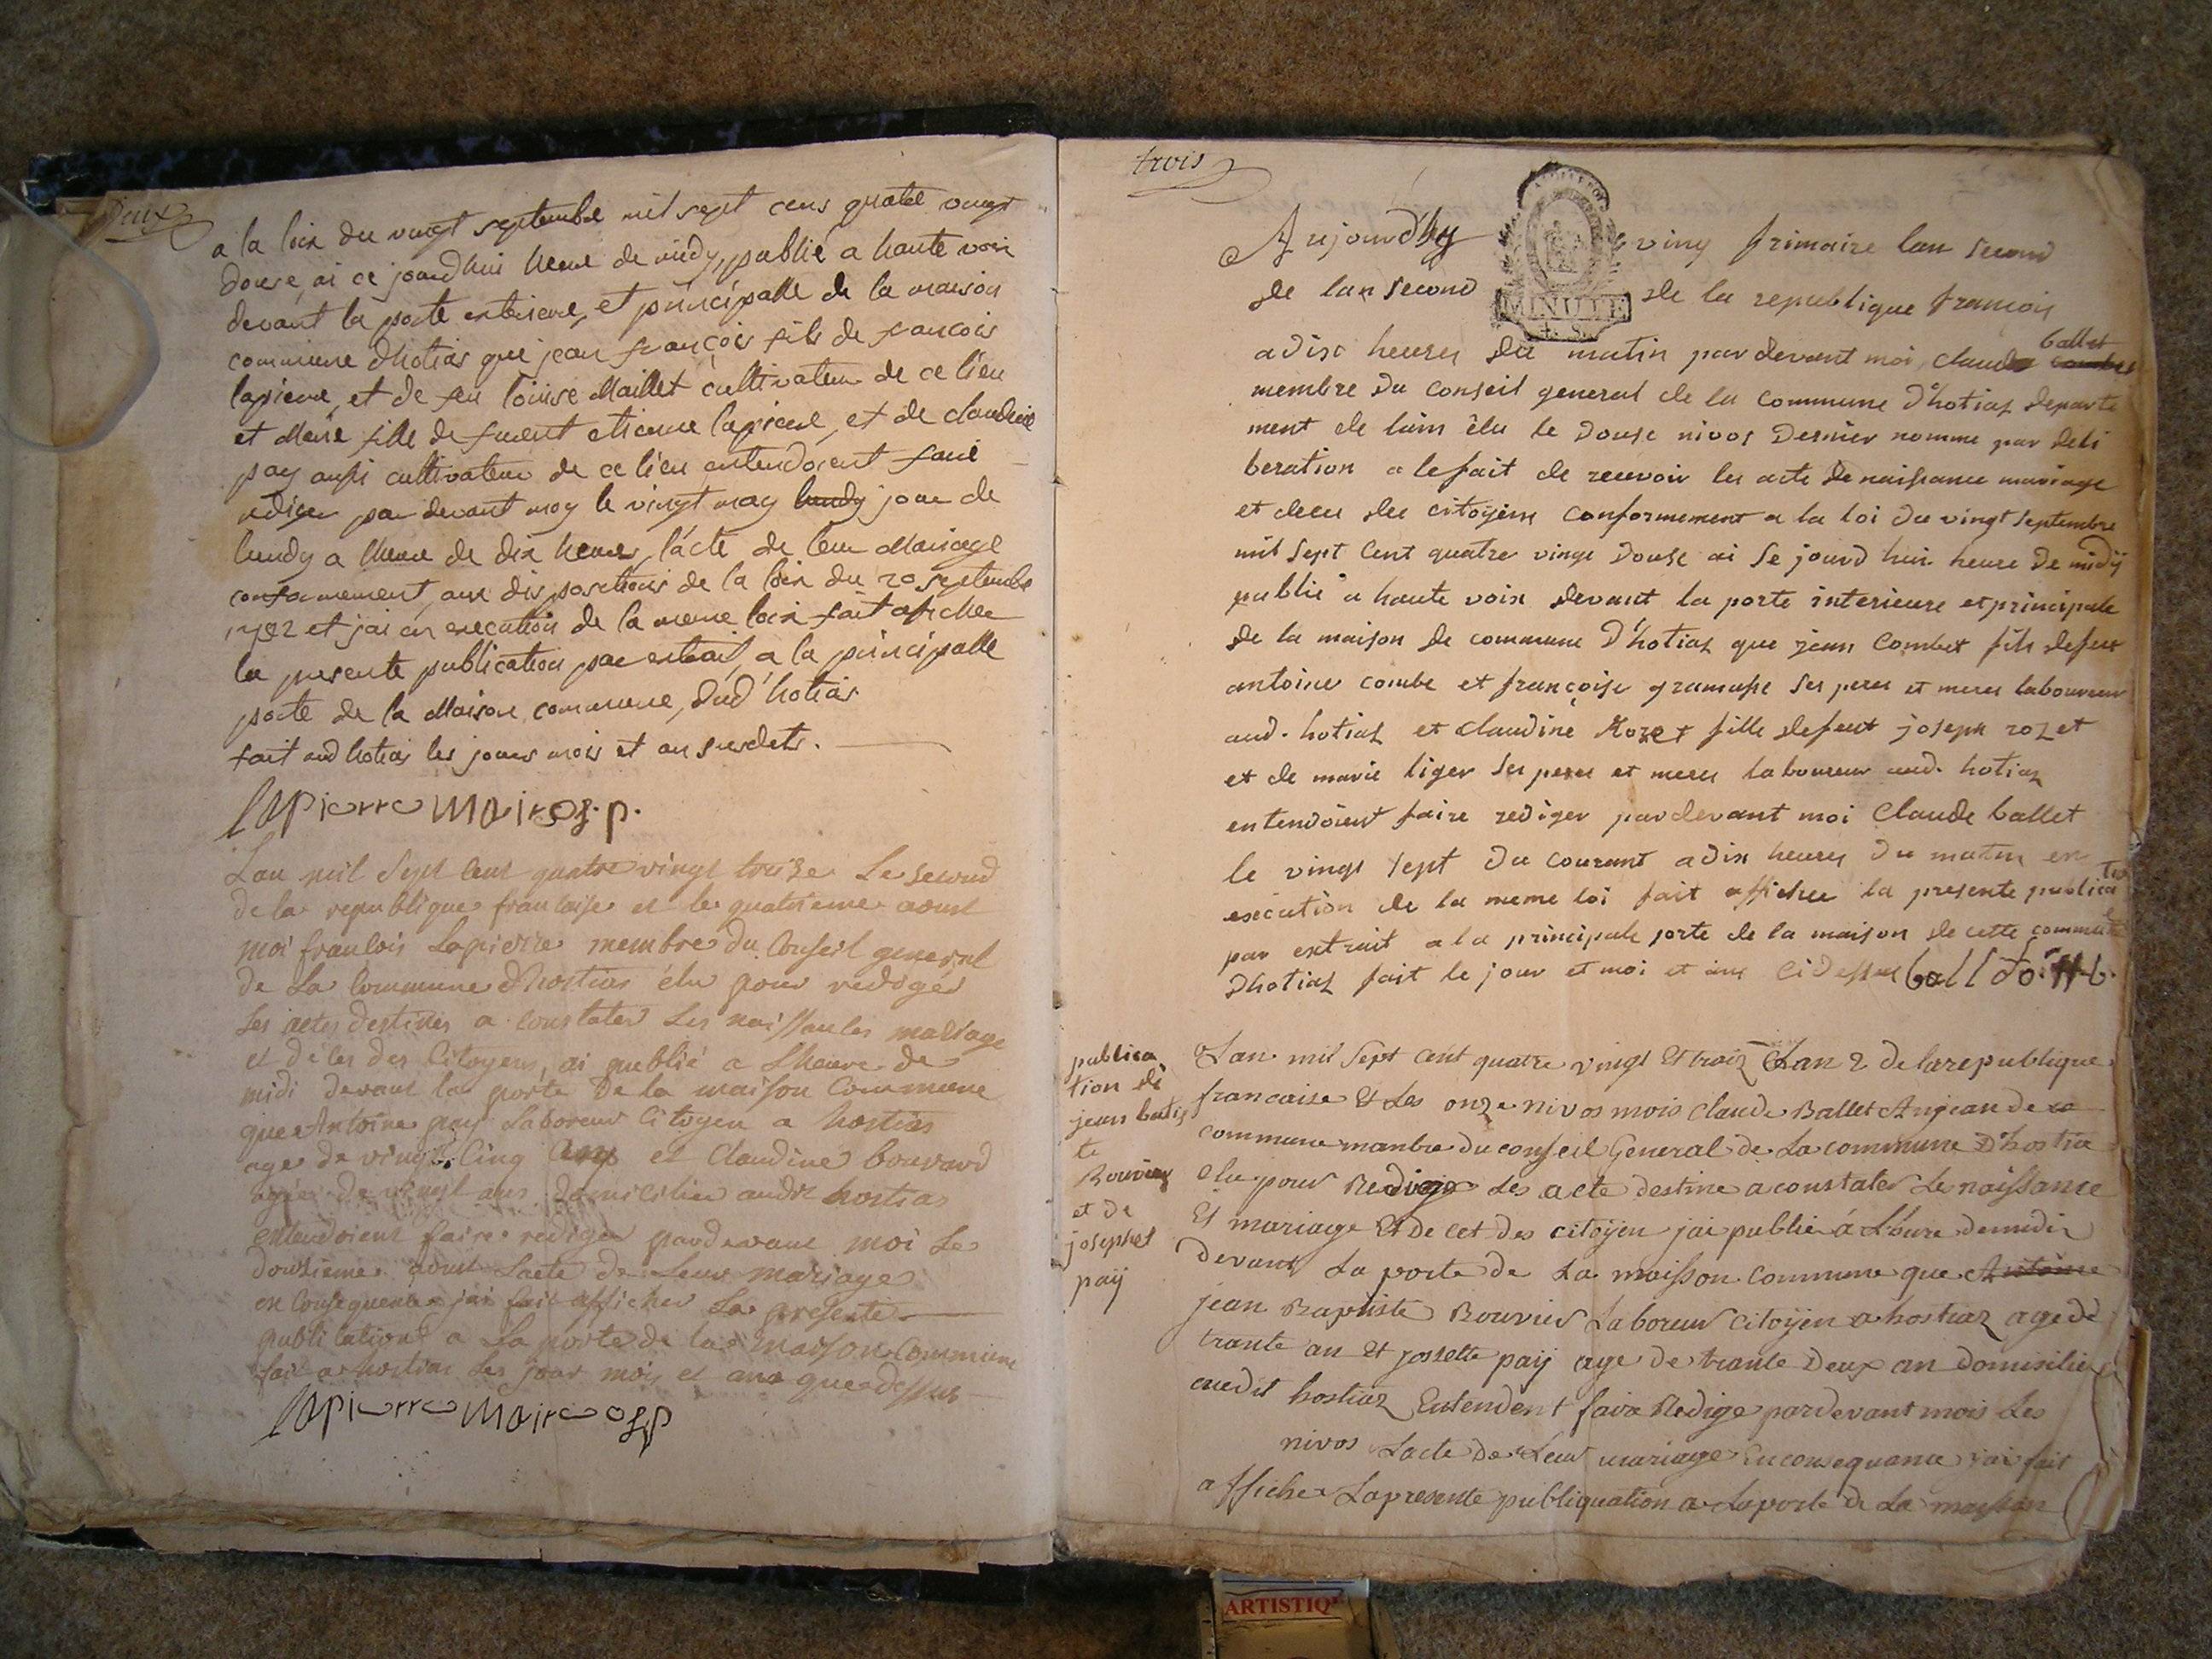 Deux
a la loix du vingt septembre mil sept cens quatre vingt
douse, ai ce jourdhui heure de midy, publié a haute voix
devant la porte exterieure, et principalle de la maison
commune dhotias que jean françois fils de francois
lapierre, et de feu louise Maillet cultivateur de ce lieu
et Marie fille de etienne lapierre, et de claudine
pay aussi cultivateur de ce lieu entendoient faire
rediger par devant moy le vingt may lundy jour de
lundy a lheure de dix heures, l'acte de leur Mariage
conformement, aux dispositions de la loix du 20 septembre
1792 et jai en execution de la meme loix fait afficher
la presente publication par extrait, a la principalle
porte de la Maison commune, dud'hotias
fait aud hotias les jours mois et an susdets.
lapierre maire of.p.
Lan mil sept cent quatre vingt treize Le second
de la republique francaise et le quatrieme aout
moi francois Lapierre membre du Conseil general
de La Commune dhostias élu pour rediger
Les actes destines a constater Les naissances mariage
et décès des Citoyens, ai publié a Lheure de
midi devant la porte De la maison Commune
que Antoine pay Laboreur Citoyen a hostias
age de vingt Cinq ans et Claudine bouvard
agée de vingt ans domicilier audit hostias
entendoient faire rediger pardevant moi Le
douzieme aout Lacte de Leur mariage
en Consequence jai fait afficher La presente
publication a La porte de la maison Commune
fait a hostias Les jour mois et an que dessus
lapierre maire ofp
trois
Aujourdhy ving frimaire lan second
de lan second de la republique francois
MINUTE
a dix heures du matin par devant moi, claude combet ballet
membre du conseil general de la commune d'hotiaz departe
ment de lain élu le douse nivos dernier nomme par deli
beration a le fait de recevoir les acte de naissance mariage
et deces des citoyens conformement a la loi du vingt septembre
mil sept cent quatre vingt douse ai se jourd hui heure de midy
publié a haute voix devant la porte interieure et principale
de la maison de commune D'hotiaz que jean Combet fils de feu
antoine combe et françoise gramusse ses peres et meres laboureur
aud. hotiaz et claudine Rozet fille de feut joseph rozet
et de marie liger ses peres et meres laboureur aud. hotiaz
entendoient faire rediger pardevant moi Claude ballet
le vingt sept du courant a dix heures du matin en
execution de la meme loi fait afficher la presente publication
par extrait a la principale porte de la maison de cette commune
Dhotiaz fait le jour et moi et ans ci dessus
publica
tion de
jean batis
te
Bouvier
et de
josephet
paÿ
Lan mil sept cent quatre vingt et troiz Lan 2 de la republique
francaise Et Les onze nivos mois claude Ballet
commune manbre du conseil General de La commune D'hostia
elu pour Redige Les acte destine a constater Le naissance
Et mariage Et De cet des citoÿen jai publie á Lheure de midi
devant La porte de La maisson commune que Antoine
jean Baptiste Bouvier Laboreur citoÿen a hostiaz age de
trante an Et jossette paÿ age de trante Deux an domisilie
auedit hostiaz Entendent faire Redige pardevant mois Les
nivos Lacte de Leur mariage En consequance jai fait
afficher La presente publiquation a La porte de La maisson
ARTISTIQ